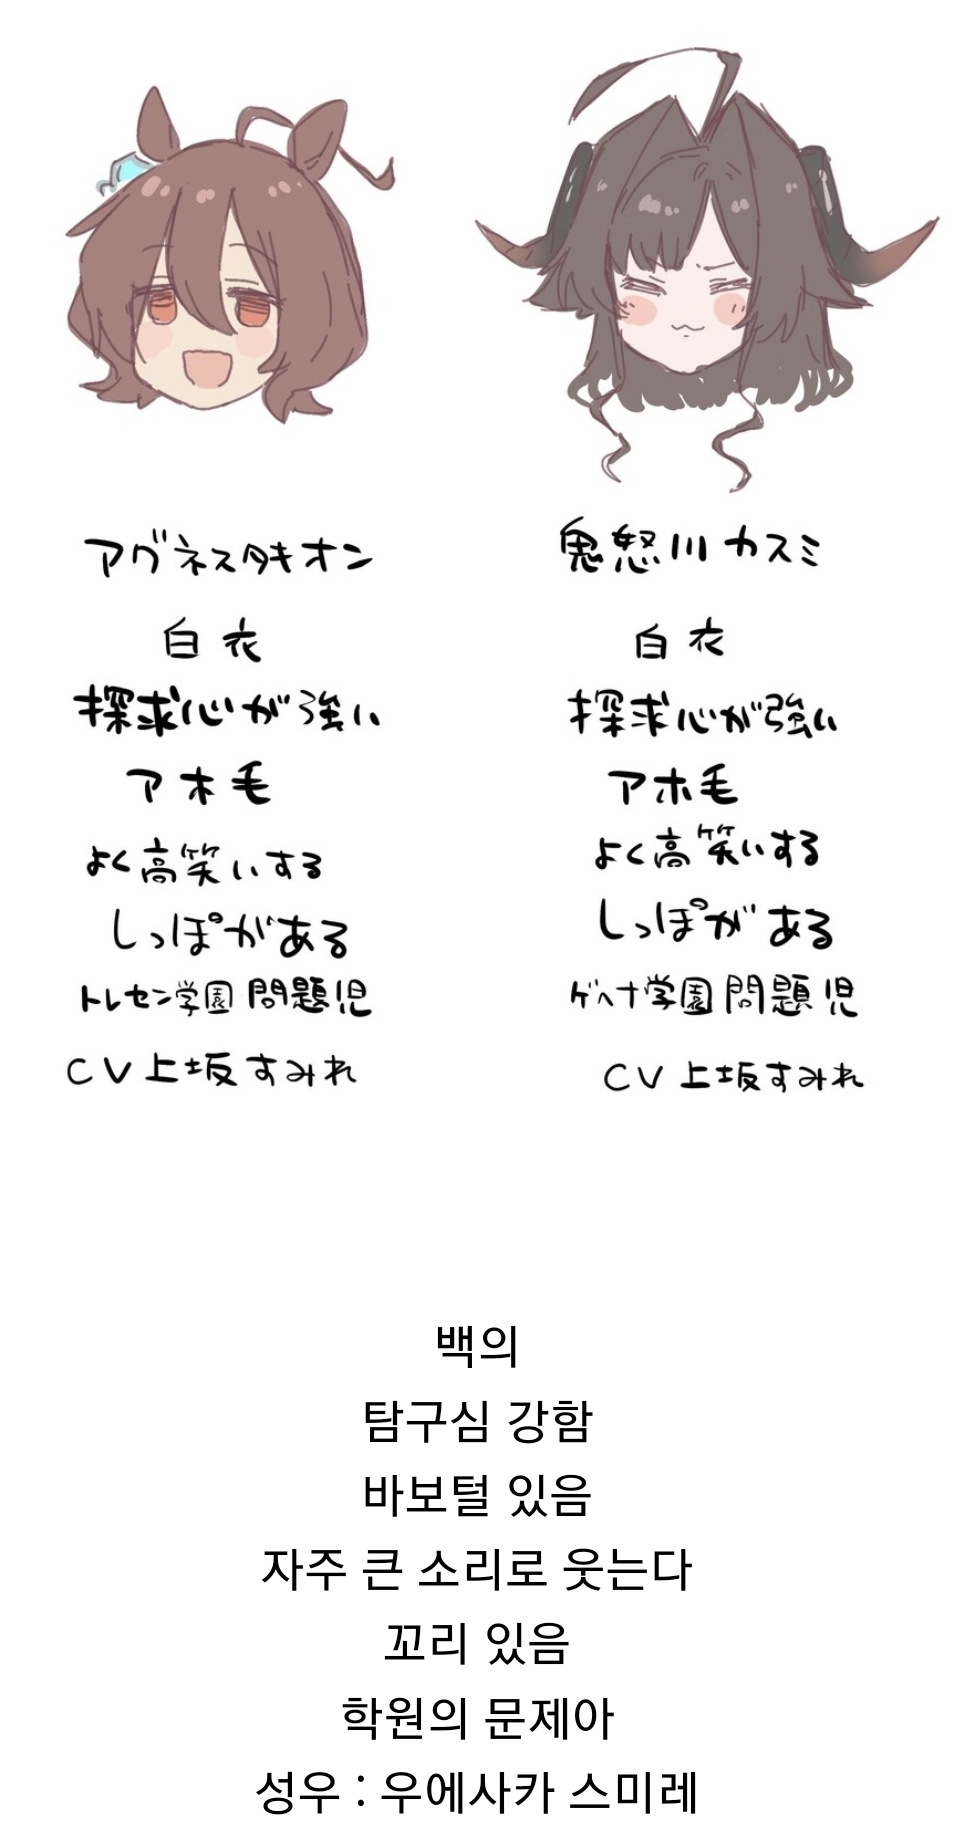 アグネスタキオン
白衣
探求心が強い
アホ毛
よく高笑いする
しっぽがある
トレセン学園 問題児
CV 上坂すみれ
鬼怒川カスミ
白衣
探求心が強い
アホ毛
よく高笑いする
しっぽがある
ゲヘナ学園 問題児
CV 上坂すみれ
백의
탐구심 강함
바보털 있음
자주 큰 소리로 웃는다
꼬리 있음
학원의 문제아
성우 : 우에사카 스미레